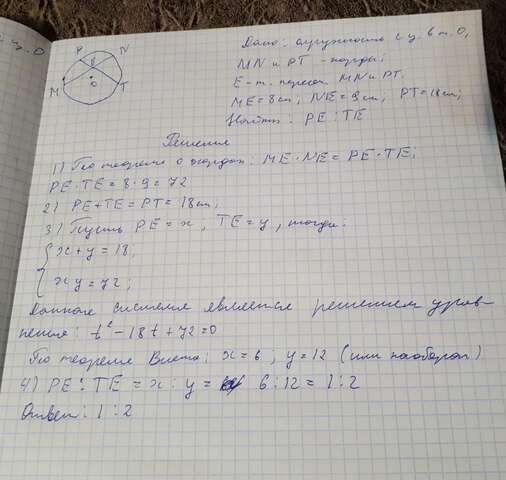 с ц. О
Дано: окружность с ц. в т. О,
P
N
E
O
M
T
MN и PT - хорды;
E - т. пересеч. MN и PT.
ME = 8 см; NE = 9 см, PT = 18 см;
Найти: PE : TE
Решение
1) По теореме о хордах: ME · NE = PE · TE;
PE · TE = 8 · 9 = 72
2) PE + TE = PT = 18 см;
3) Пусть PE = x, TE = y, тогда:
x + y = 18,
xy = 72;
Данная система является решением урав-
нения: t² - 18t + 72 = 0
По теореме Виета: x = 6, y = 12 (или наоборот)
4) PE : TE = x : y = 6 : 12 = 1 : 2
Ответ: 1 : 2